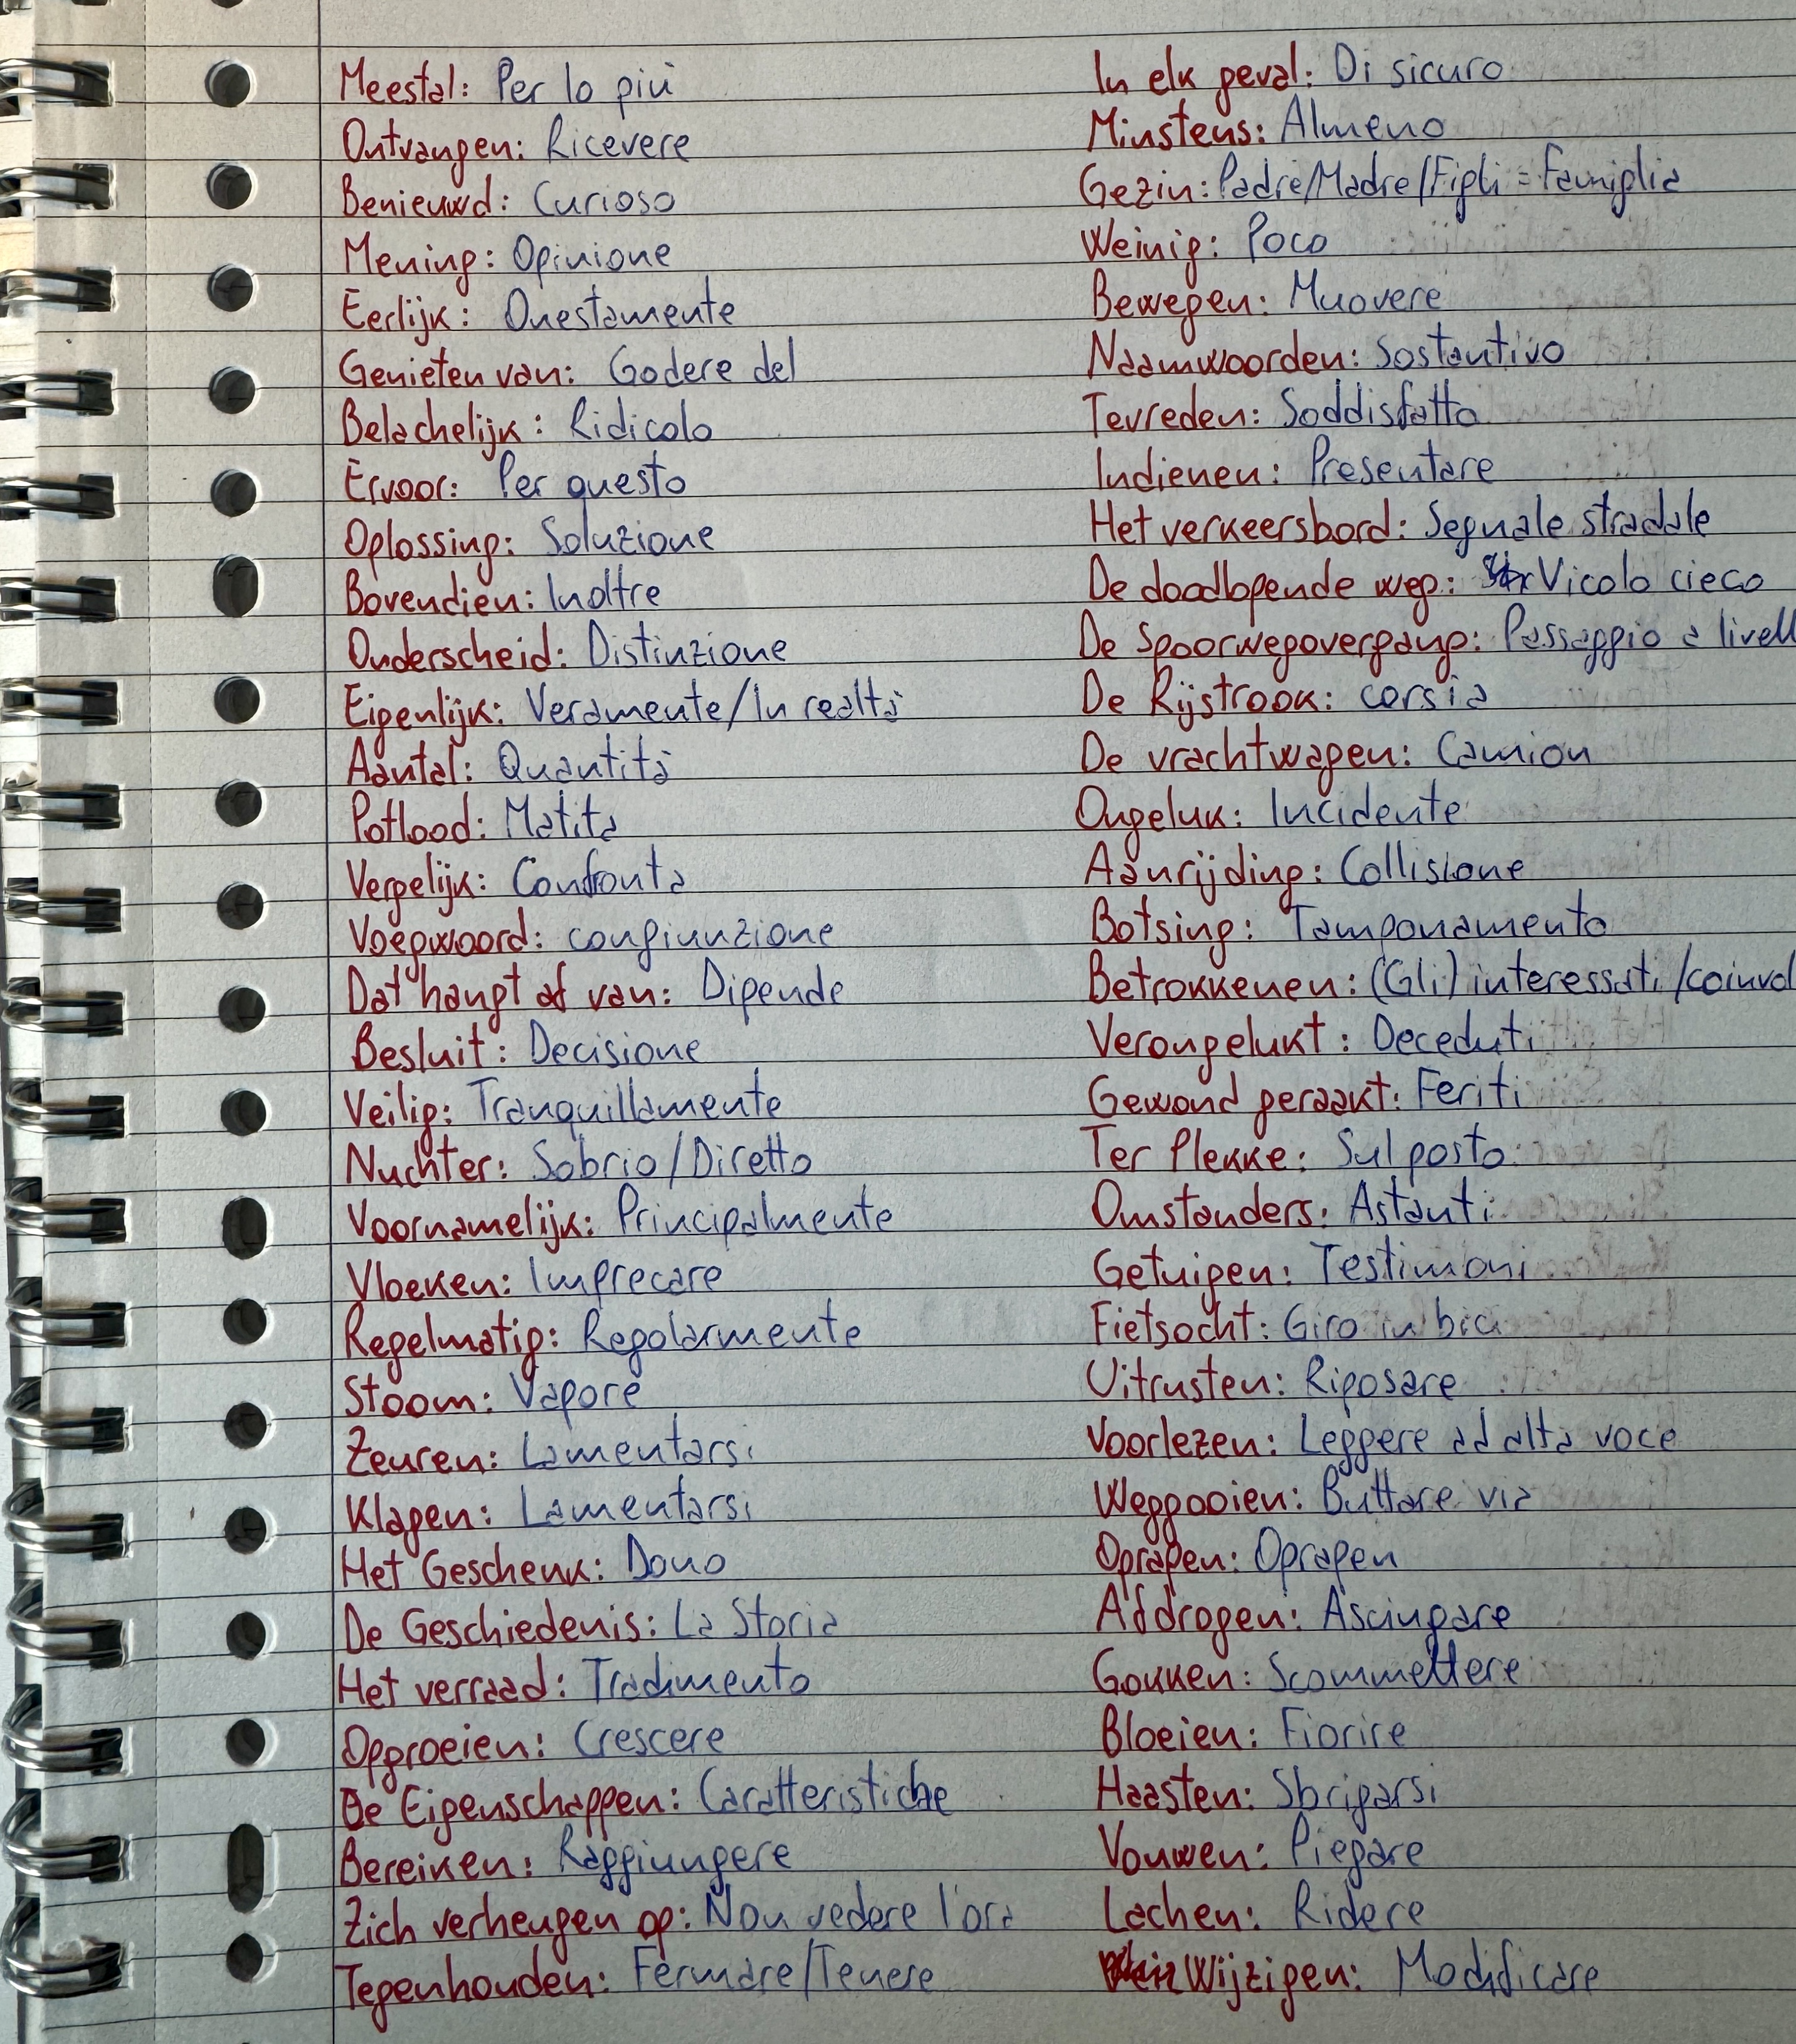 Meestal: Per lo più
Ontvangen: Ricevere
Benieuwd: Curioso
Mening: Opinione
Eerlijk: Onestamente
Genieten van: Godere del
Belachelijk: Ridicolo
Ervoor: Per questo
Oplossing: Soluzione
Bovendien: Inoltre
Onderscheid: Distinzione
Eigenlijk: Veramente/In realtà
Aantal: Quantità
Potlood: Matita
Vergelijk: Confronta
Voegwoord: congiunzione
Dat hangt af van: Dipende
Besluit: Decisione
Veilig: Tranquillamente
Nuchter: Sobrio/Diretto
Voornamelijk: Principalmente
Vloeken: Imprecare
Regelmatig: Regolarmente
Stoom: Vapore
Zeuren: Lamentarsi
Klagen: Lamentarsi
Het Geschenk: Dono
De Geschiedenis: La Storia
Het verraad: Tradimento
Opgroeien: Crescere
De Eigenschappen: Caratteristiche
Bereiken: Raggiungere
Zich verheugen op: Non vedere l'ora
Tegenhouden: Fermare/Tenere
In elk geval: Di sicuro
Minstens: Almeno
Gezin: Padre/Madre/Figli = Famiglia
Weinig: Poco
Bewegen: Muovere
Naamwoorden: Sostantivo
Tevreden: Soddisfatto
Indienen: Presentare
Het verkeersbord: Segnale stradale
De doodlopende weg: Vicolo cieco
De Spoorwegovergang: Passaggio a livell
De Rijstrook: corsia
De vrachtwagen: Camion
Ongeluk: Incidente
Aanrijding: Collisione
Botsing: Tamponamento
Betrokkenen: (Gli) interessati/coinvol
Verongelukt: Deceduti
Gewond geraakt: Feriti
Ter Plekke: Sul posto
Omstanders: Astanti
Getuigen: Testimoni
Fietsocht: Giro in bici
Uitrusten: Riposare
Voorlezen: Leggere ad alta voce
Weggooien: Buttare via
Oprapen: Oprapen
Afdrogen: Asciugare
Gokken: Scommettere
Bloeien: Fiorire
Haasten: Sbrigarsi
Vouwen: Piegare
Lachen: Ridere
Wijzigen: Modificare